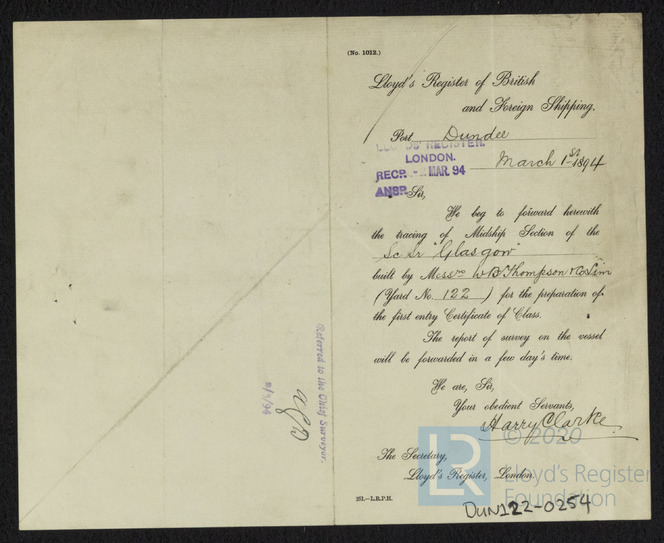 (No. 1012.)
Lloyd's Register of British
and Foreign Shipping.
Port Dundee
LLOYDS' REGISTER.
LONDON.
March 1st 1894
RECP. - MAR. 94
ANSP.
Sir,
We beg to forward herewith
the tracing of Midship Section of the
Sc Sr "Glasgow"
built by Messrs W B Thompson & Co Lim
(Yard No. 122) for the preparation of
the first entry Certificate of Class.
The report of survey on the vessel
will be forwarded in a few day's time.
We are, Sir,
Your obedient Servants,
Harry Clarke
The Secretary,
Lloyd's Register, London.
251.—L.R.P.H.
DUN122-0254
Referred to the Chief Surveyor.
LR
© 2020
Lloyd's Register
Foundation